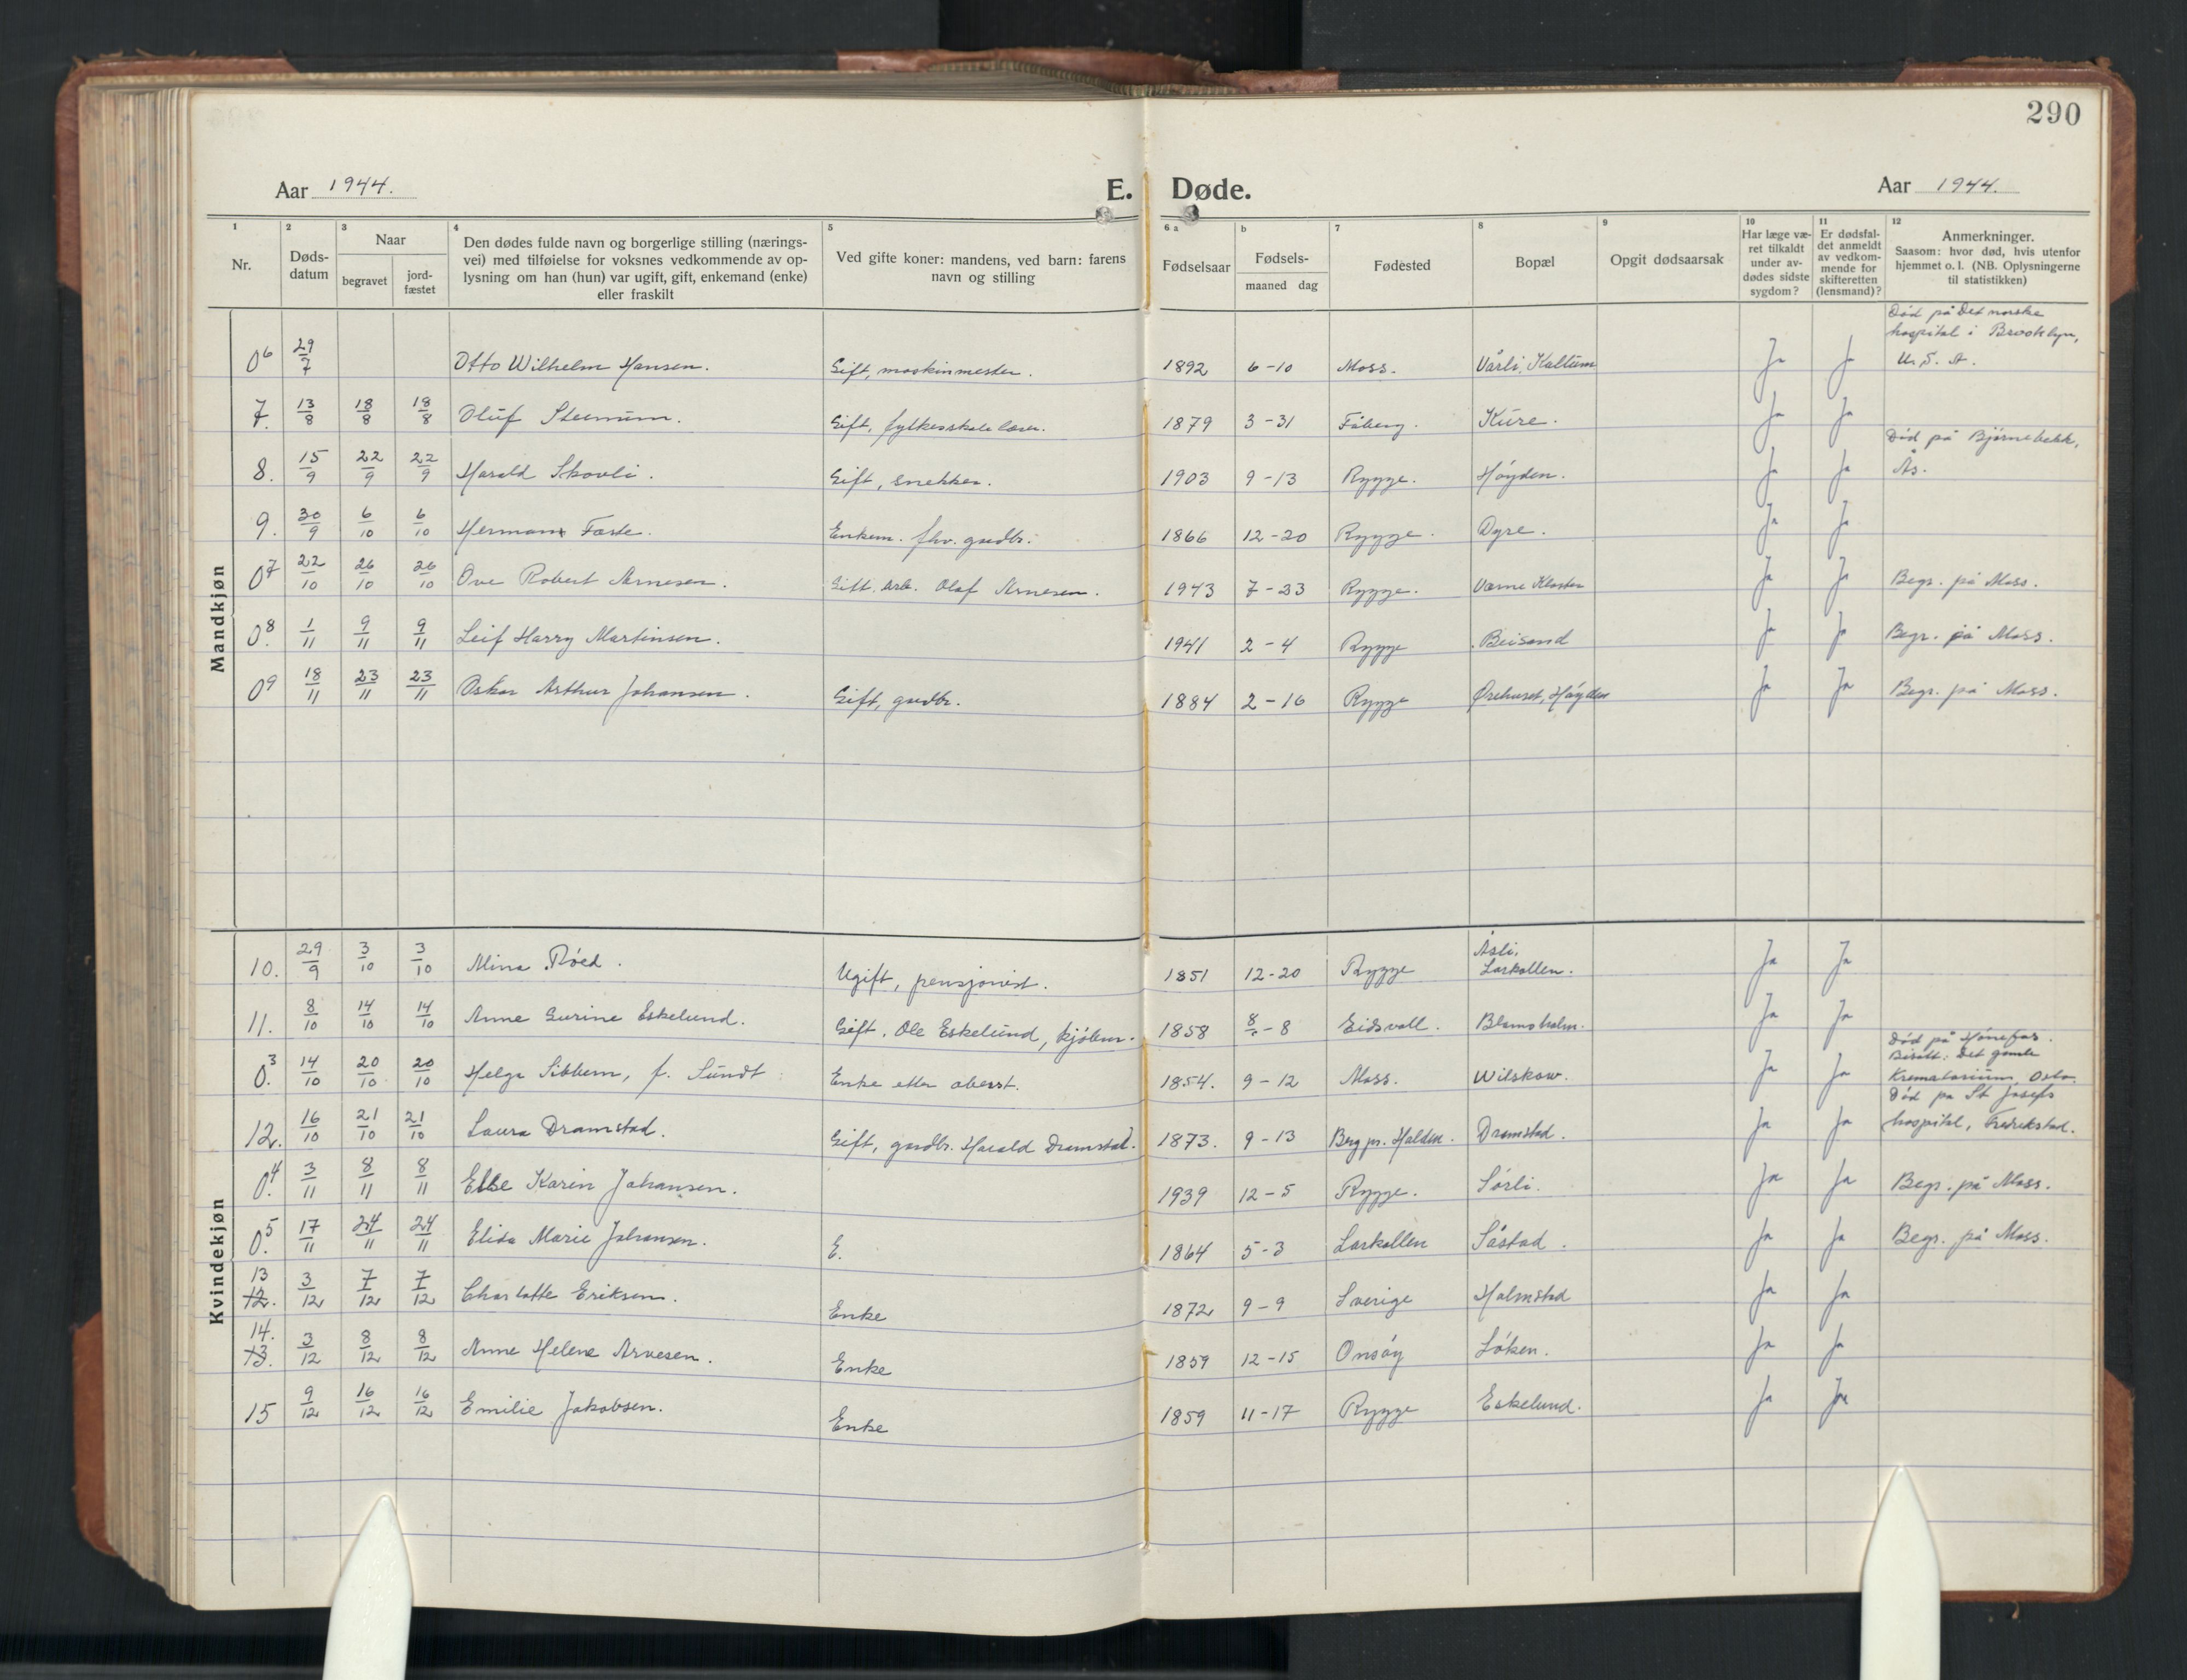 290
Aar 1944. E. Døde. Aar 1944.
1 2 3 4 5 6 a b 7 8 9 10 11 12
Nr.
Døds-
datum
Naar
begravet
jord-
fæstet
Den dødes fulde navn og borgerlige stilling (nærings-
vei) med tilføielse for voksnes vedkommende av op-
lysning om han (hun) var ugift, gift, enkemand (enke)
eller fraskilt
Ved gifte koner: mandens, ved barn: farens
navn og stilling
Fødselsaar
Fødsels-
maaned dag
Fødested
Bopæl
Opgit dødsaarsak
Har læge væ-
ret tilkaldt
under av-
dødes sidste
sygdom?
Er dødsfal-
det anmeldt
av vedkom-
mende for
skifteretten
(lensmand)?
Anmerkninger.
Saasom: hvor død, hvis utenfor
hjemmet o. l. (NB. Oplysningerne
til statistikken)
Mandkjøn
Død på Det norske
hospital i Brooklyn,
06 29/7 Otto Wilhelm Hansen. Gift, maskinmester. 1892 6-10 Moss. Vårli, Kallum Ja Ja U. S. A.
7. 13/8 18/8 18/8 Oluf Steenum. Gift, fylkesskolelærer. 1879 3-31 Fåberg. Kure. Ja Ja
Død på Bjørnebekk,
8. 15/9 22/9 22/9 Harald Skovli. Gift, snekker. 1903 9-13 Rygge. Høyden. Ja Ja Ås.
9. 30/9 6/10 6/10 Herman Faste. Enkem. fhv. gårdbr. 1866 12-20 Rygge. Dyre. Ja Ja
07 22/10 26/10 26/10 Ove Robert Arnesen. Gift. Arb. Olaf Arnesen. 1943 7-23 Rygge. Værne Kloster Ja Ja Begr. på Moss.
08. 1/11 9/11 9/11 Leif Harry Martinsen. 1941 2-4 Rygge Beisand Ja Ja Begr. på Moss.
09 18/11 23/11 23/11 Oskar Arthur Johansen. Gift, gårdbr. 1884 2-16 Rygge Ørehuset, Høyden Ja Ja Begr. på Moss.
Kvindekjøn
Åsli,
10. 29/9 3/10 3/10 Mina Røed. Ugift, pensjonist. 1851 12-20 Rygge Larkollen. Ja Ja
11. 8/10 14/10 14/10 Anne Gurine Eskelund. Gift. Ole Eskelund, kjøbm. 1858 8-8 Eidsvoll. Blomsholm. Ja Ja
Død på Hønefos.
Bisatt: Det gamle
03. 14/10 20/10 20/10 Helga Sibbern, f. Sundt. Enke etter oberst. 1854. 9-12 Moss. Wilskow. Ja Ja Krematorium, Oslo.
Død på St Josefs
12. 16/10 21/10 21/10 Laura Dramstad. Gift, gårdbr. Harald Dramstad. 1873. 9-13 Berg pr. Halden. Dramstad. Ja Ja hospital, Fredrikstad.
04. 3/11 8/11 8/11 Else Karin Johansen. 1939 12-5 Rygge. Sørli. Ja Ja Begr. på Moss.
05. 17/11 24/11 24/11 Elida Marie Johansen. E. 1864 5-3 Larkollen Såstad. Ja Ja Begr. på Moss.
13
12. 3/12 7/12 7/12 Charlotte Eriksen. Enke 1872 9-9 Sverige Halmstad Ja Ja
14.
13. 3/12 8/12 8/12 Anne Helene Arvesen. Enke 1859 12-15 Onsøy Løken. Ja Ja
15 9/12 16/12 16/12 Emilie Jakobsen. Enke 1859 11-17 Rygge Eskelund. Ja Ja